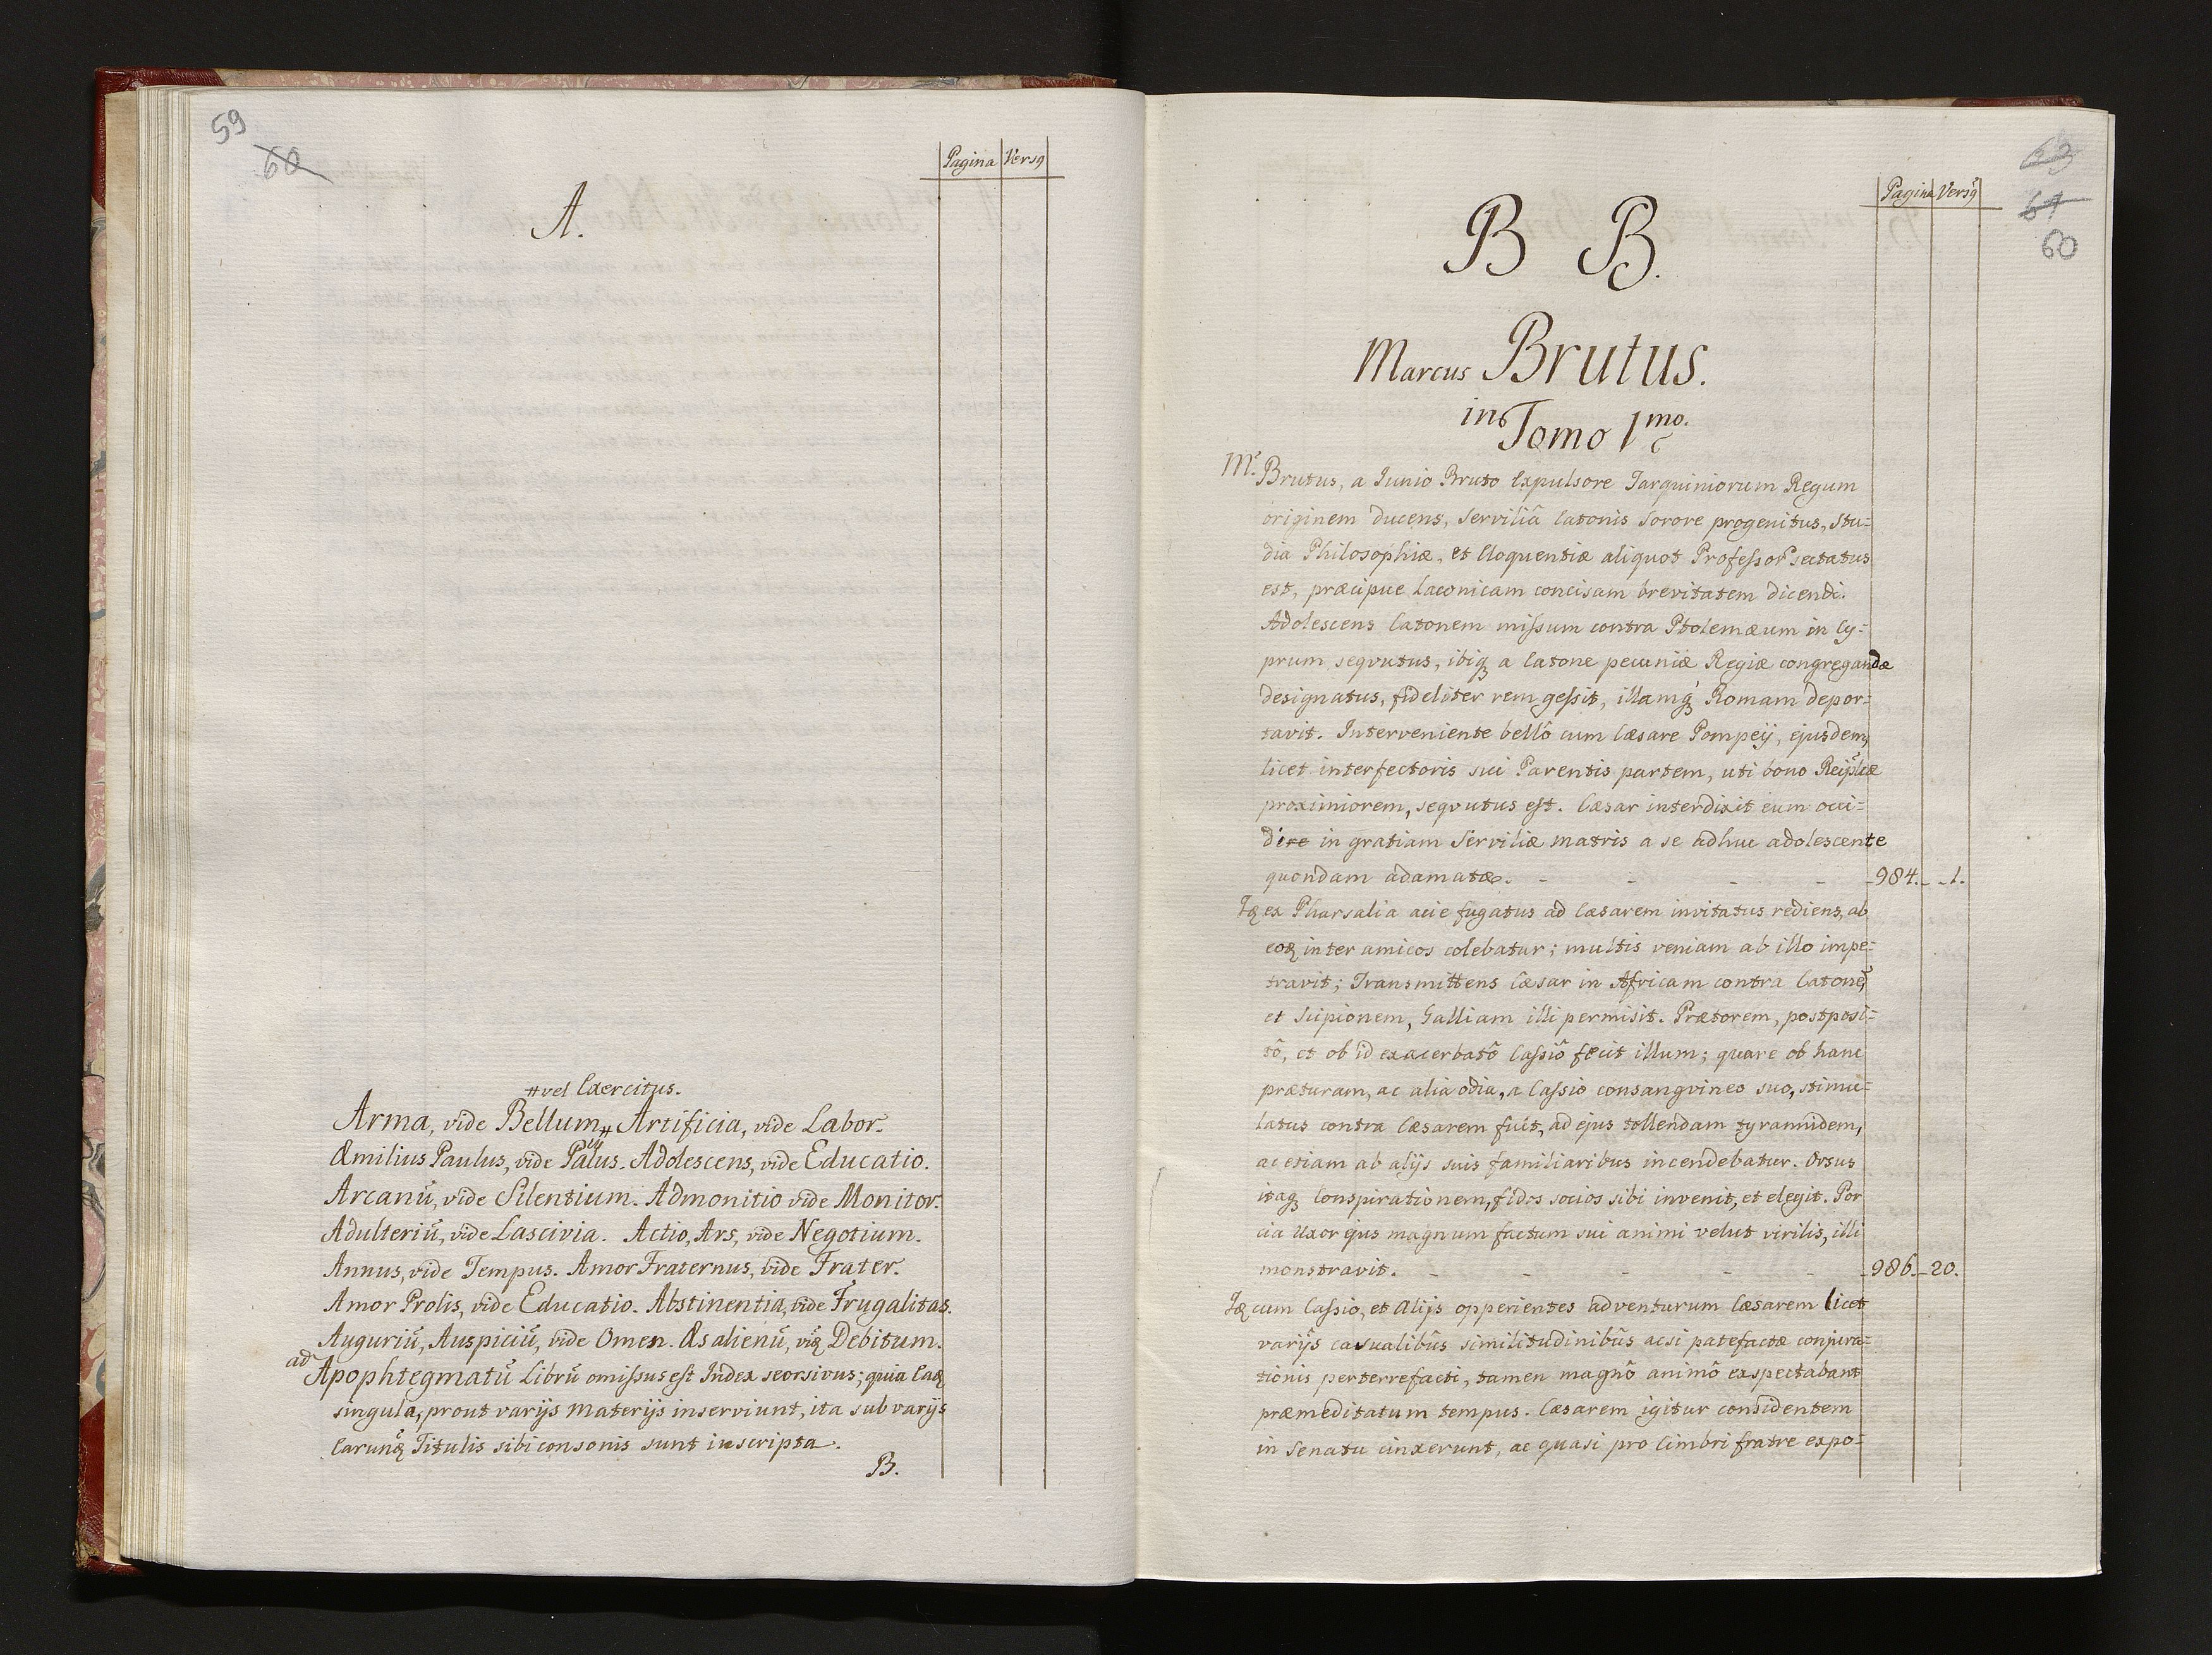 59
60
Pagina Versꝰ
A.
# vel Exercitus.
Arma, vide Bellum, # Artificia, vide Labor.
Æmilius Paulus, vide Palus. Adolescens, vide Educatio.
Arcanũ, vide Silentium. Admonitio vide Monitor.
Adulteriũ, vide Lascivia. Actio, Ars, vide Negotium.
Annus, vide Tempus. Amor Fraternus, vide Frater.
Amor Prolis, vide Educatio. Abstinentia, vide Frugalitas.
Auguriũ, Auspiciũ, vide Omen. Æs alienũ, Debitum.
ad Apophtegmatũ Librũ omissus est Index seorsivus; quia
singula, prout varijs Materijs inserviunt, ita sub varijs
Titulis sibi consonis sunt inscripta.
B.
61
60
Pagina Versꝰ
B B.
Marcus Brutus.
in Tomo 1mo.
M. Brutus, a Junio Bruto Expulsore Tarquiniorum Regum
originem ducens, Serviliâ Catonis Sorore progenitus, stu=
dia Philosophiæ, et Eloquentiæ aliquot Professor sectatus
est, præcipue Laconicam concisam brevitatem dicendi.
Adolescens Catonem missum contra Ptolemæum in Cy=
prum, seqvutus, ibiq; a Catone pecuniæ Regiæ congregandæ
designatus, fideliter rem gessit, illamq; Romam depor=
tavit. Interveniente bellô cum Cæsare Pompeij, ejusdem,
licet interfectoris sui Parentis partem, uti bono Reiplæ
proximiorem, seqvutus est. Cæsar interdixit eum occi=
dere in gratiam Serviliæ matris a se adhuc adolescente
quondam adamatæ. - - - - - 984. - - 1.
Iꝗ ex Pharsalia acie fugatus ad Cæsarem invitatus rediens, ab
eoꝗ inter amicos colebatur; multis veniam ab illo impe=
travit; Transmittens Cæsar in Africam contra Catonẽ,
et Scipionem, Galliam illi permisit. Prætorem, postposi=
tô, et ob id exacerbatô Cassiô fecit illum; quare ob hanc
præturam, ac alia odia, a Cassio consangvineo suo, stimu=
latus contra Cæsarem fuit, ad ejus tollendam tyrannidem,
ac etiam ab alijs suis familiaribus incendebatur. Orsus
itaq; Conspirationem, fidos socios sibi invenit, et elegit. Por
cia Uxor ejus magnum factum sui animi velut virilis, illi
monstravit. - - - - - 986. - 20.
Iꝗ cum Cassio, et Alijs opperientes adventurum Cæsarem licet
varijs casualibus similitudinibus acsi patefactæ conjura=
tionis perterrefacti, tamen magnô animô exspectabant
præmeditatum tempus. Cæsarem igitur considentem
in Senatu cinxerunt, ac quasi pro Cimbri fratre expo=